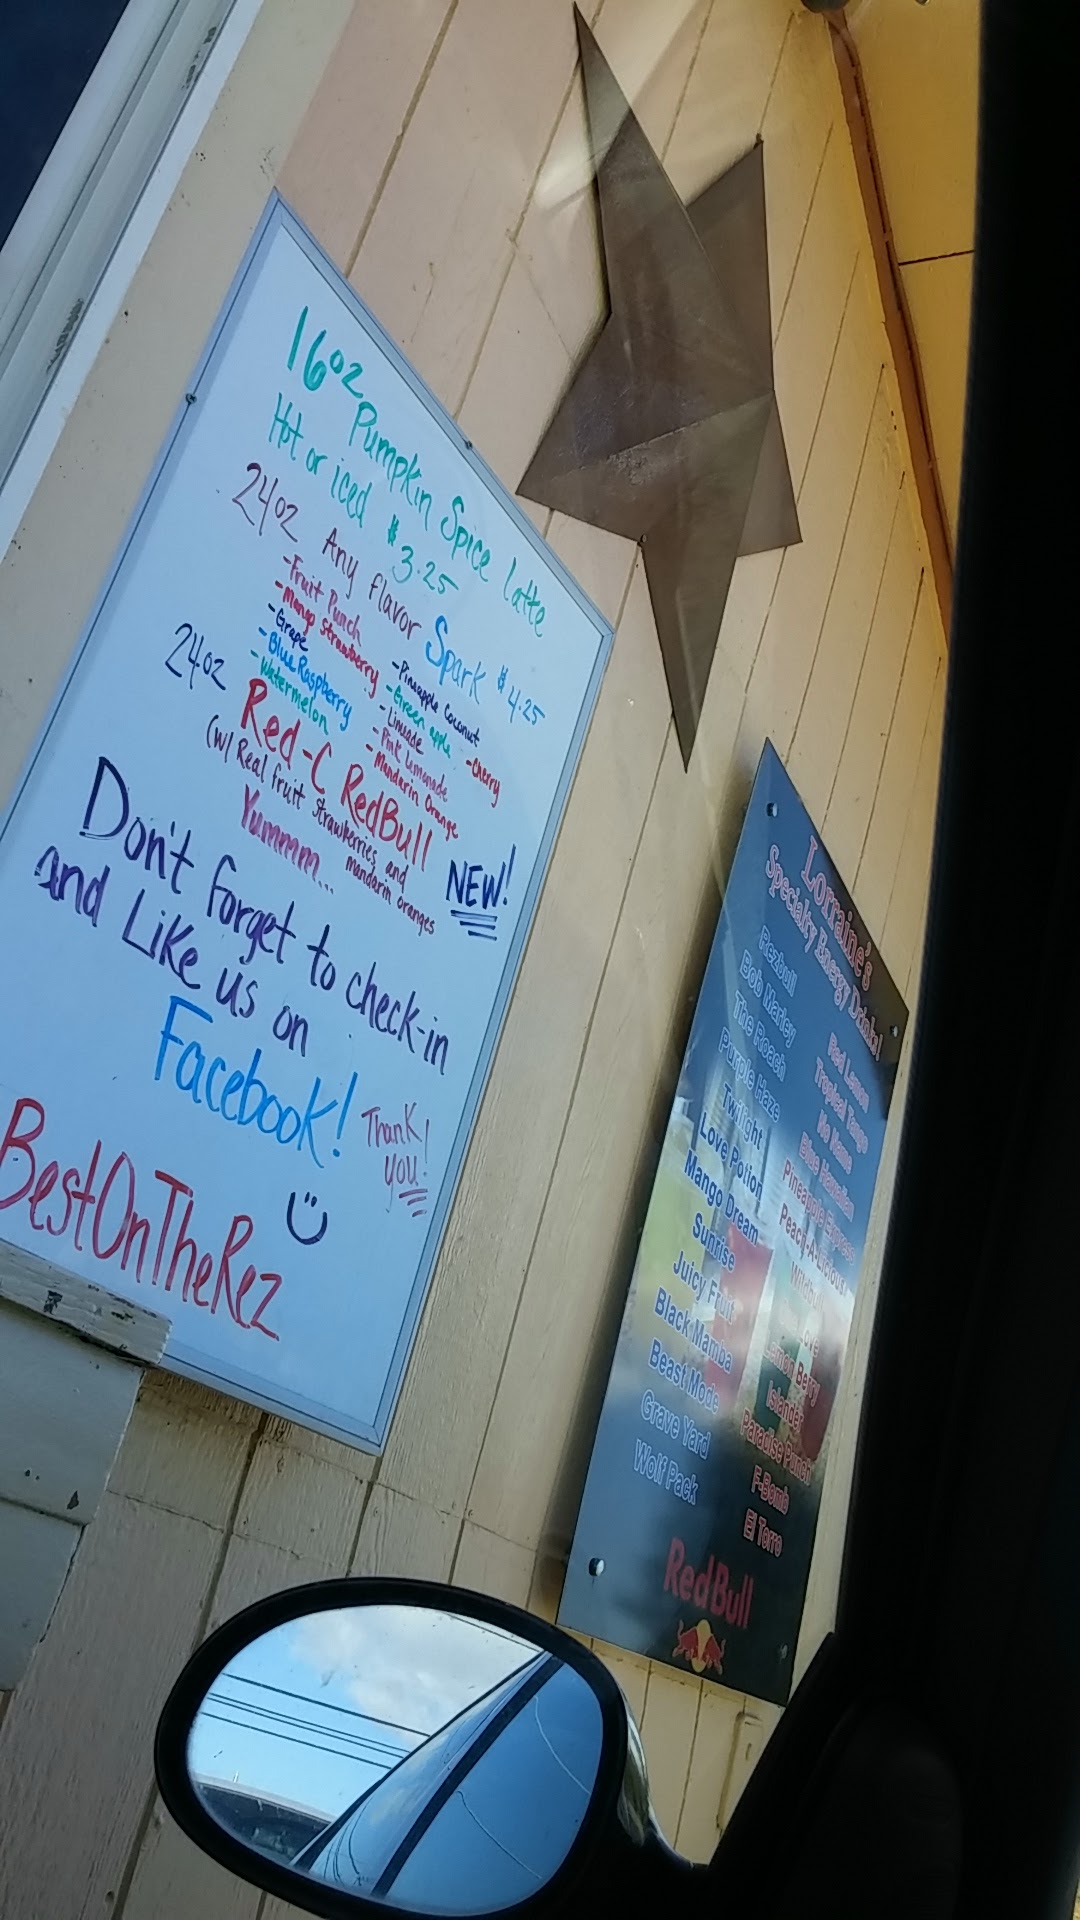 16oz Pumpkin Spice latte
Hot or iced $3.25
24oz Any flavor Spark $4.25
-Fruit Punch
-Mango strawberry
-Grape
-Blue Raspberry
-Watermelon
-Pineapple Coconut
-Green apple
-Limeade
-Pink lemonade
-Mandarin Orange
-Cherry
24oz Red-C RedBull
(w/ Real fruit strawberries and
mandarin oranges
Yummm...
NEW!
Don't forget to check-in
and Like us on
Facebook!
Thank
you!
BestOnTheRez
Lorraine's
Specialty Energy Drinks!
Rezbull
Bob Marley
The Roach
Purple Haze
Twilight
Love Potion
Mango Dream
Sunrise
Juicy Fruit
Black Mamba
Beast Mode
Grave Yard
Wolf Pack
Tropical Tango
No Name
Blue Hawaiian
Pineapple Express
Peach-A-Licious
Lemon Berry
Islander
Paradise Punch
F-Bomb
El Torro
RedBull